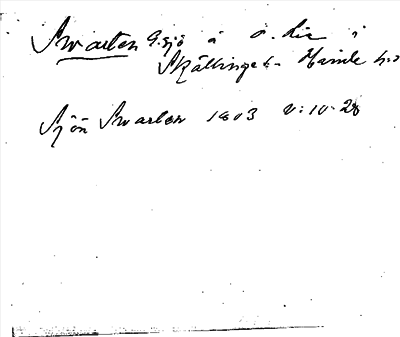 Swarten G. sjö å ö. liv i
Skällinge s. Himle hd
Sjön Swarten 1803 V:10:28